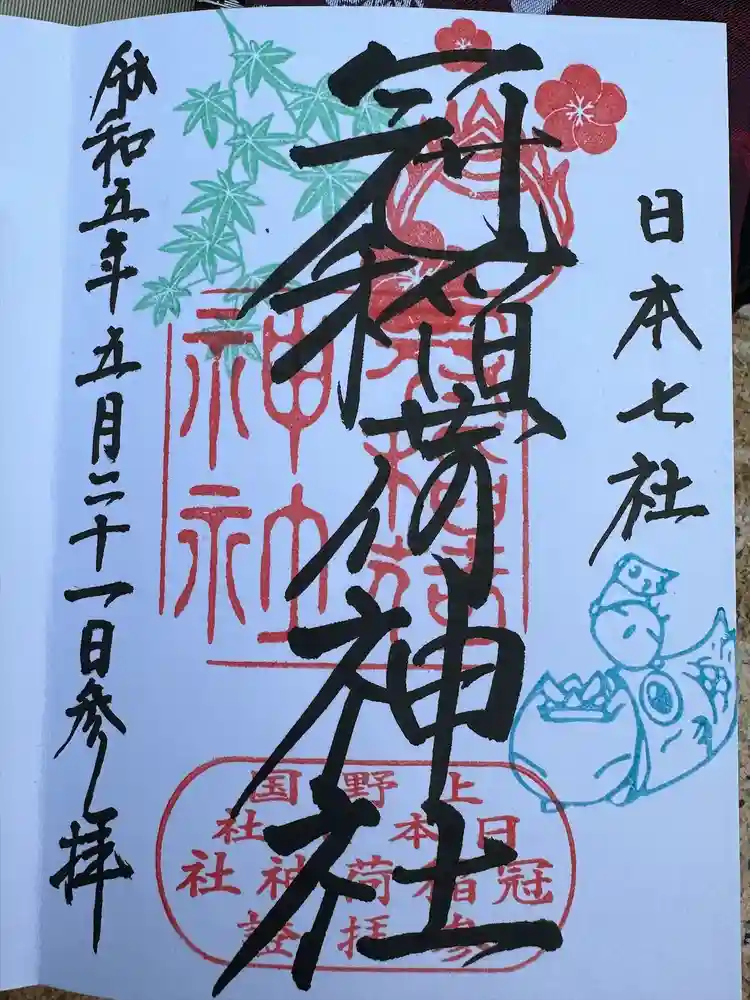 日本七社
冠稲荷神社
令和五年五月二十一日参拝
上野国
日本社
冠稲荷神社
参拝證